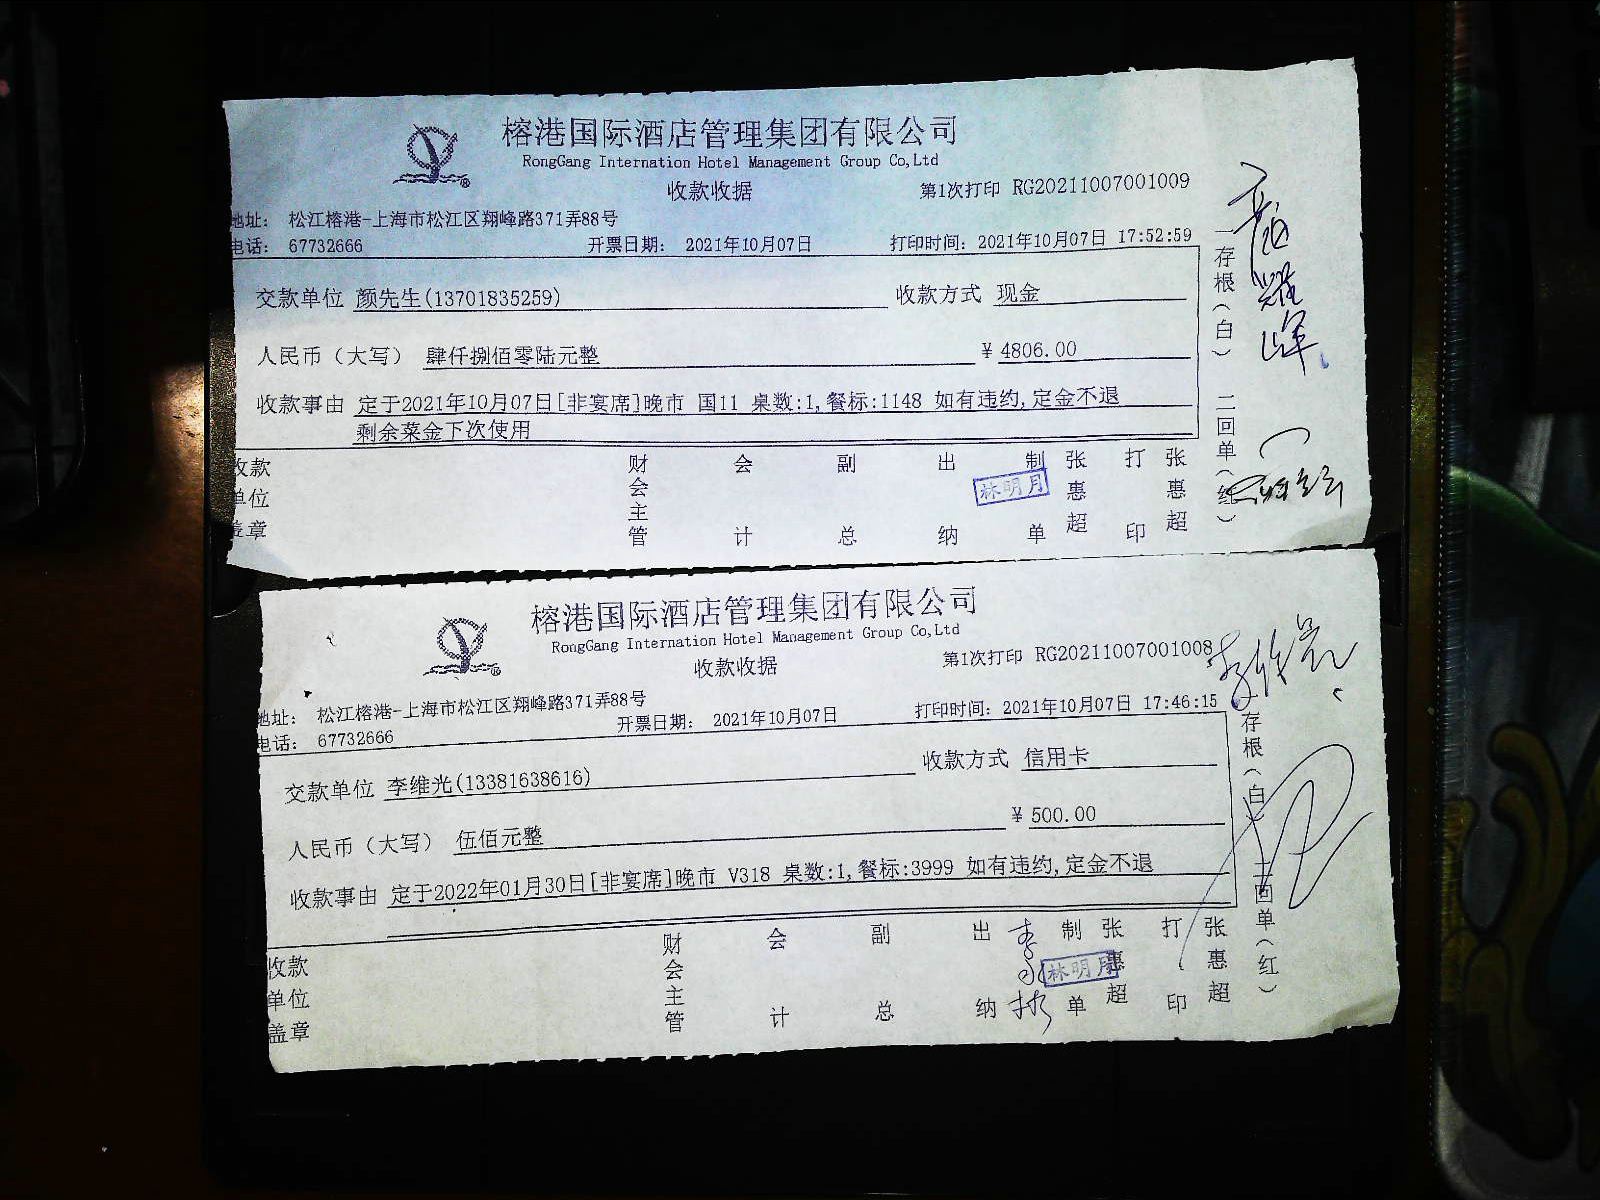 榕港国际酒店管理集团有限公司
RongGang Internation Hotel Management Group Co,Ltd
收款收据
第1次打印 RG20211007001009
地址： 松江榕港-上海市松江区翔峰路371弄88号
电话： 67732666 开票日期： 2021年10月07日 打印时间：2021年10月07日 17:52:59
交款单位 颜先生(13701835259) 收款方式 现金
人民币（大写） 肆仟捌佰零陆元整 ￥4806.00
收款事由 定于2021年10月07日[非宴席]晚市 国11 桌数:1,餐标:1148 如有违约,定金不退
剩余菜金下次使用
收款单位盖章 财会主管 会计 副总 出纳 制单 张惠超 打印 张惠超
林明月
一存根（白） 二回单（红）
榕港国际酒店管理集团有限公司
RongGang Internation Hotel Management Group Co,Ltd
收款收据
第1次打印 RG20211007001008
地址： 松江榕港-上海市松江区翔峰路371弄88号
电话： 67732666 开票日期： 2021年10月07日 打印时间：2021年10月07日 17:46:15
交款单位 李维光(13381638616) 收款方式 信用卡
人民币（大写） 伍佰元整 ￥500.00
收款事由 定于2022年01月30日[非宴席]晚市 V318 桌数:1,餐标:3999 如有违约,定金不退
收款单位盖章 财会主管 会计 副总 出纳 制单 张惠超 打印 张惠超
林明月
存根（白） 二回单（红）
李维光